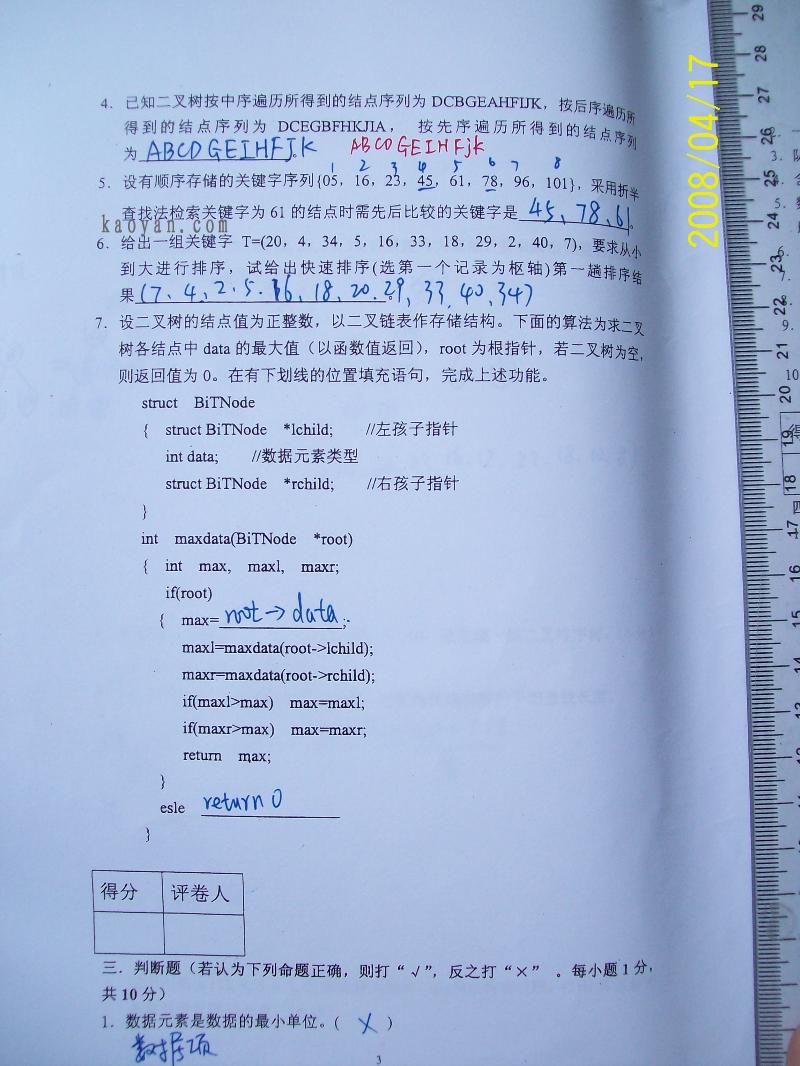 2008/04/17
4. 已知二叉树按中序遍历所得到的结点序列为 DCBGEAHFIJK，按后序遍历所
得到的结点序列为 DCEGBFHKJIA， 按先序遍历所得到的结点序列
为 ABCDGEIHFJK。 ABCDGEIHFjk
1 2 3 4 5 6 7 8
5. 设有顺序存储的关键字序列{05，16，23，45，61，78，96，101}，采用折半
查找法检索关键字为 61 的结点时需先后比较的关键字是 45、78、61。
kaoyan.com
6. 给出一组关键字 T=(20，4，34，5，16，33，18，29，2，40，7)，要求从小
到大进行排序，试给出快速排序(选第一个记录为枢轴)第一趟排序结
果 (7、4、2、5、16、18、20、29、33、40、34)
7. 设二叉树的结点值为正整数，以二叉链表作存储结构。下面的算法为求二叉
树各结点中 data 的最大值（以函数值返回），root 为根指针，若二叉树为空，
则返回值为 0。在有下划线的位置填充语句，完成上述功能。
struct BiTNode
{ struct BiTNode *lchild; //左孩子指针
int data; //数据元素类型
struct BiTNode *rchild; //右孩子指针
}
int maxdata(BiTNode *root)
{ int max, maxl, maxr;
if(root)
{ max= root→data ;
maxl=maxdata(root->lchild);
maxr=maxdata(root->rchild);
if(maxl>max) max=maxl;
if(maxr>max) max=maxr;
return max;
}
esle return 0
}
得分 评卷人
三．判断题（若认为下列命题正确，则打“√”，反之打“×” 。每小题 1 分，
共 10 分）
1．数据元素是数据的最小单位。( × )
数据项
3